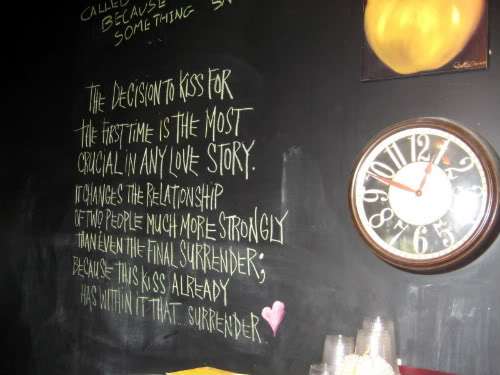 CALLED
BECAUSE
SOMETHING
...
THE DECISION TO KISS FOR
THE FIRST TIME IS THE MOST
CRUCIAL IN ANY LOVE STORY.
IT CHANGES THE RELATIONSHIP
OF TWO PEOPLE MUCH MORE STRONGLY
THAN EVEN THE FINAL SURRENDER;
BECAUSE THIS KISS ALREADY
HAS WITHIN IT THAT SURRENDER
12
1
10
9
8
7
6
5